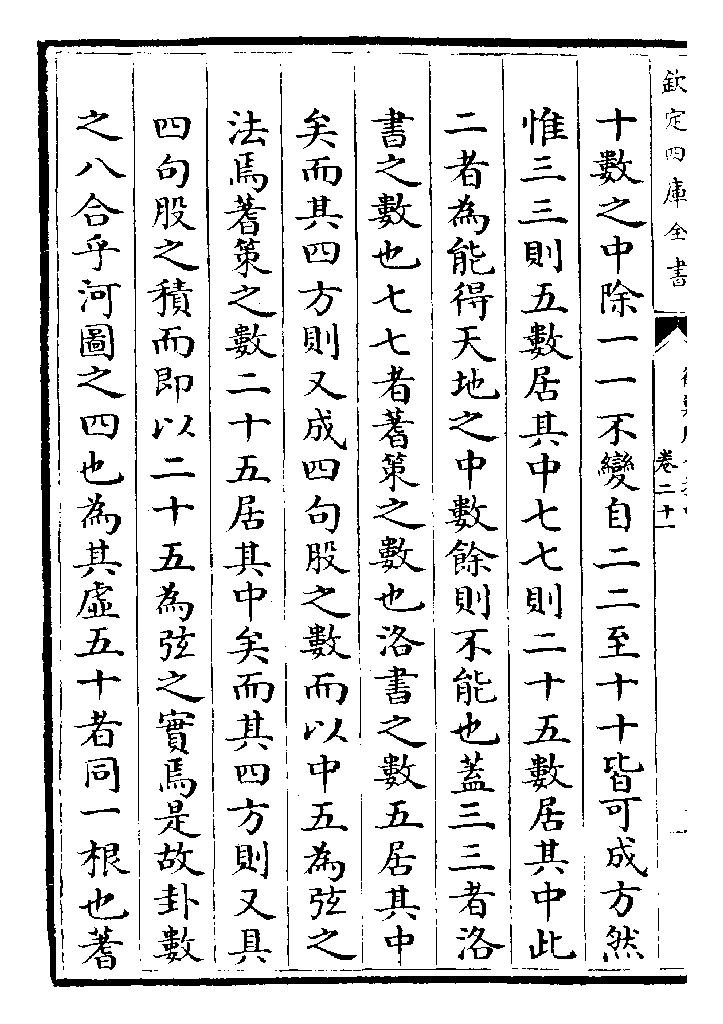 欽定四庫全書
卷二十一
十數之中除一一不變自二二至十十皆可成方然
惟三三則五數居其中七七則二十五數居其中此
二者為能得天地之中數餘則不能也蓋三三者洛
書之數也七七者蓍策之數也洛書之數五居其中
矣而其四方則又成四句股之數而以中五為弦之
法焉蓍策之數二十五居其中矣而其四方則又具
四句股之積而即以二十五為弦之實焉是故卦數
之八合乎河圖之四也為其虛五十者同一根也蓍